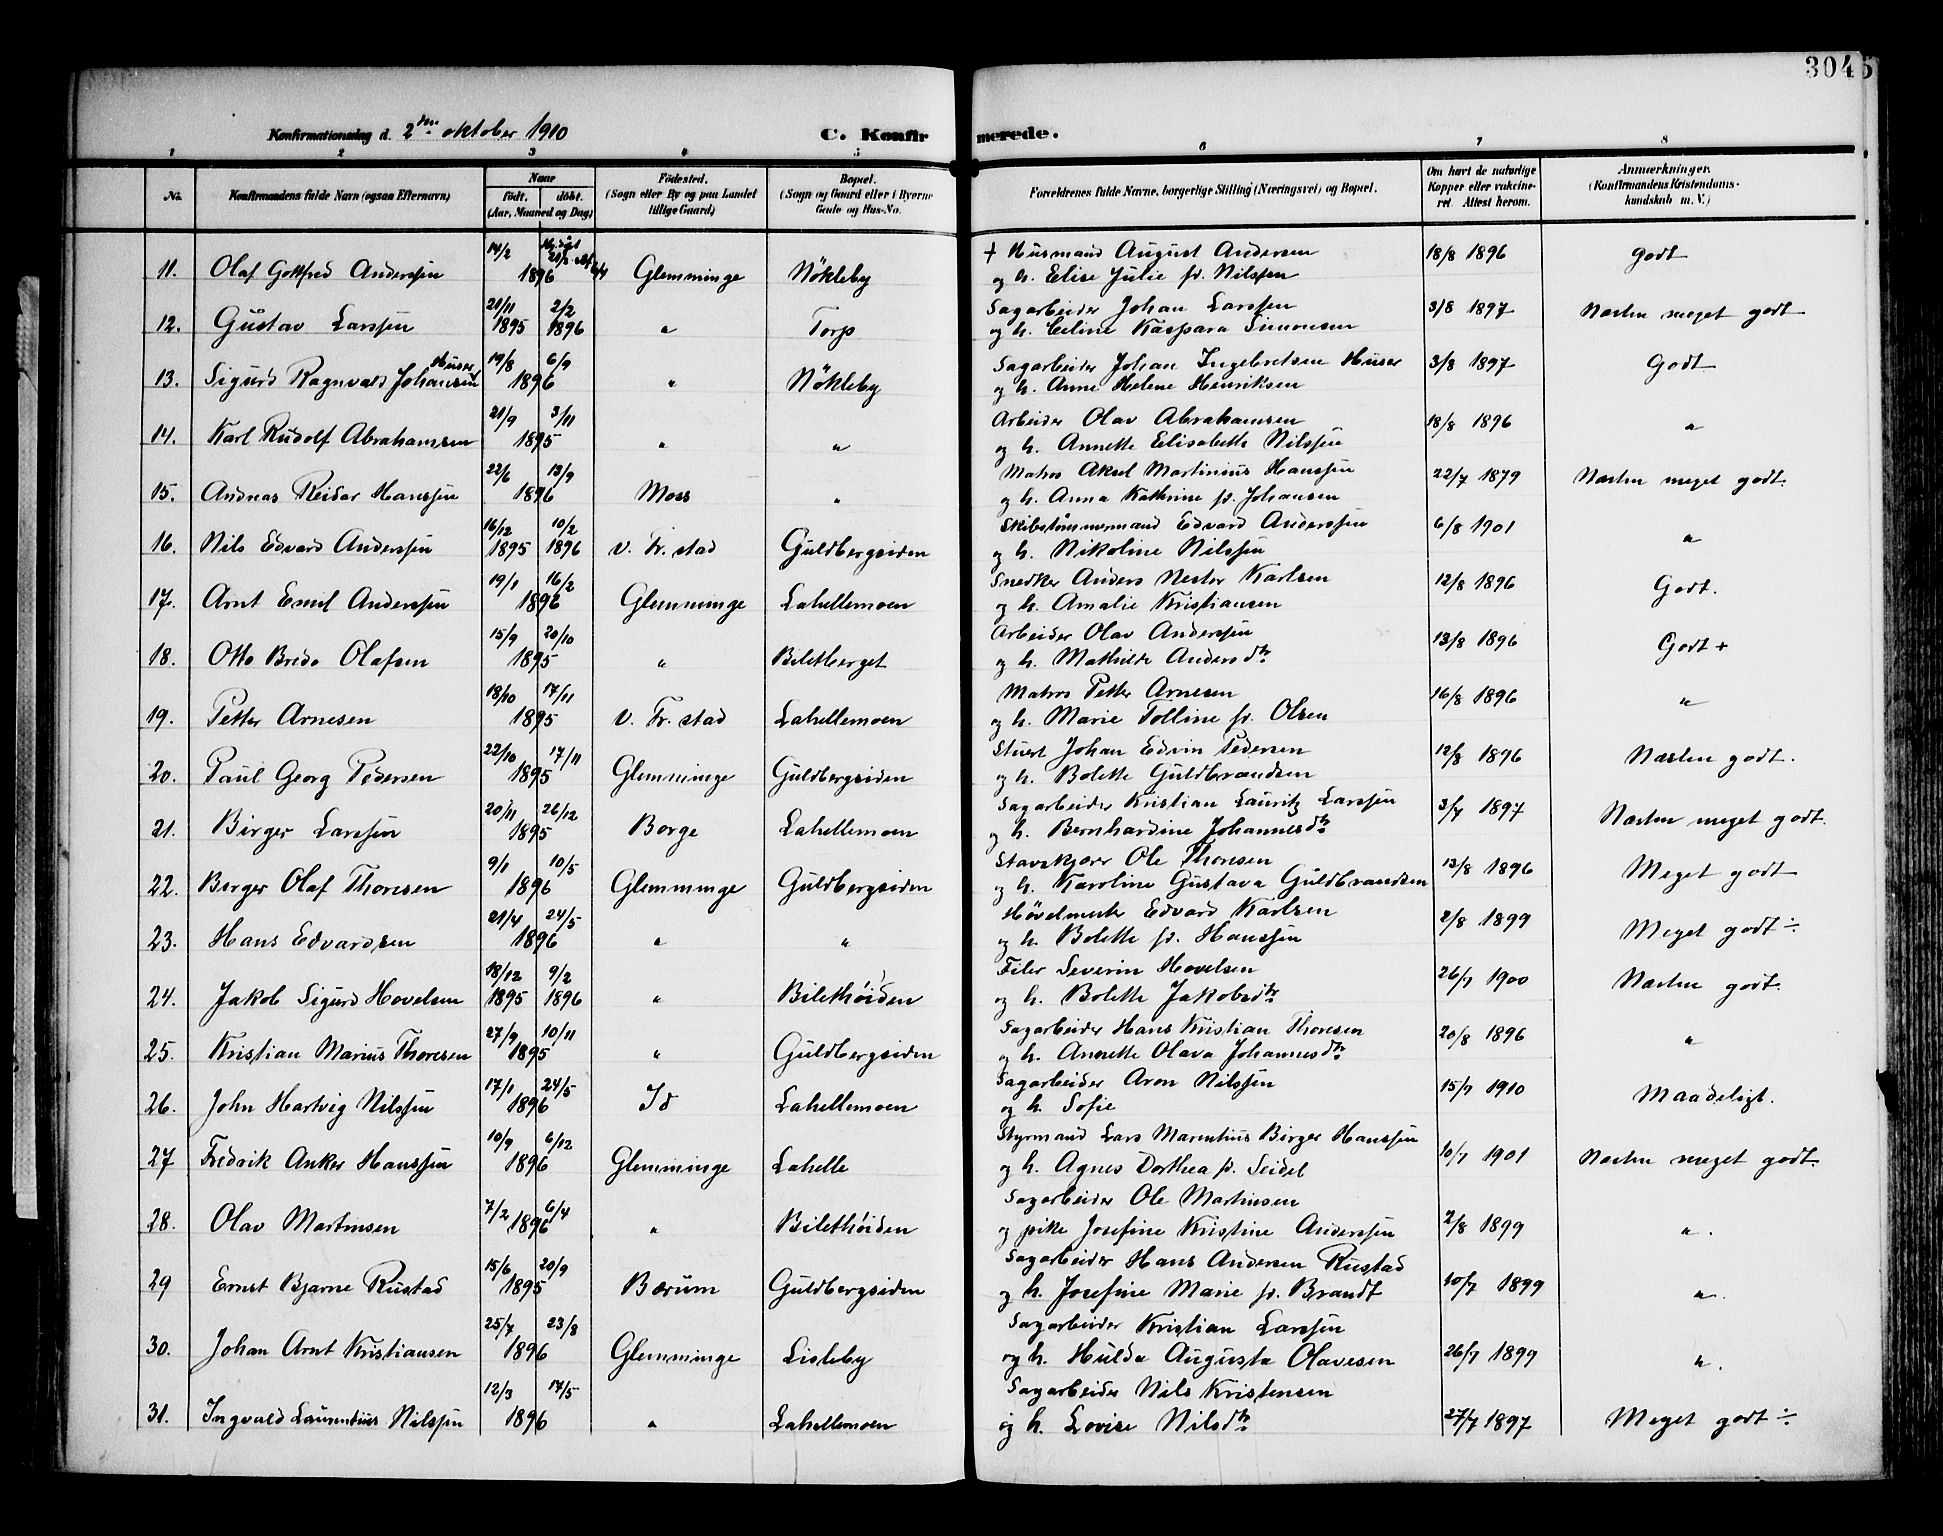 3045
Konfirmationsdag d. 2den oktober 1910 C. Konfirmerede.
1 2 3 4 5 6 7 8
No. Konfirmandens fulde Navn (ogsaa Efternavn) Naar født. døbt. (Aar, Maaned og Dag) Fødested. (Sogn eller By og paa Landet tillige Gaard) Bopæl. (Sogn og Gaard eller i Byerne Gade og Hus-No. Forældrenes fulde Navne, borgerlige Stilling (Næringsvei) og Bopæl. Om havt de naturlige Kopper eller vakcineret. Attest herom. Anmærkninger. (Konfirmandens Kristendomskundskab m. V.)
11. Olaf Gottfred Anderssen 14/2 1896 Glemminge Nökleby + Husmand August Andersen 18/8 1896 godt
og h. Elise Julie f. Nilssen
12. Gustav Larssen 21/11 1895 2/2 1896 " Torp Sagarbeider Johan Larssen 3/8 1897 Næsten meget godt
og h. Celine Kaspara Simonsen
13. Sigurd Ragnvald Johansen Huser 19/8 6/9 1896 " Nökleby Sagarbeider Johan Ingebretsen Huser 3/8 1897 Godt
og h. Anne Helene Henriksen
14. Karl Rudolf Abrahamsen 21/9 3/11 1895 " " Arbeider Olav Abrahamsen 18/8 1896 "
og h. Annette Elisabeth Nilssen
15. Andreas Reidar Hanssen 22/6 13/9 1896 Moss " Matros Aksel Martinius Hanssen 22/7 1879 Næsten meget godt.
og h. Anna Kathrine f. Johansen
16. Nils Edvard Anderssen 16/12 1895 10/2 1896 v. Fr. stad Guldbergsiden Skibstømmermand Edvard Anderssen 6/8 1901 "
og h. Nikoline Nilssen
17. Arnt Emil Anderssen 19/1 16/2 1896 Glemminge Lahellemoen Snedker Anders Nestor Karlsen 12/8 1896 Godt.
og h. Amalie Kristiansen
18. Otto Bredo Olafsen 15/9 20/10 1895 " Biletberget Arbeider Olav Anderssen 13/8 1896 Godt +
og h. Mathilde Andersdtr
19. Petter Arnesen 18/10 17/11 1895 v. Fr. stad Lahellemoen Matros Petter Arnesen 16/8 1896 "
og h. Marie Tolline f. Olsen
20. Paul Georg Pedersen 22/10 17/11 1895 Glemminge Guldbergsiden Stuert Johan Edvin Pedersen 12/8 1896 Næsten godt.
og h. Bolette Guldbrandsen
21. Birger Larssen 20/11 26/12 1895 Borge Lahellemoen Sagarbeider Kristian Lauritz Larssen 3/7 1897 Næsten meget godt.
og h. Bernhardine Johannesdtr
22. Borger Olaf Thoresen 9/1 10/5 1896 Glemminge Guldbergsiden Stavskjærer Ole Thoresen 13/8 1896 Meget godt
og h. Karoline Gustava Guldbrandsen
23. Hans Edvardsen 21/4 24/5 1896 " " Høvelmester Edvard Karlsen 2/8 1899 Meget godt ÷
og h. Bolette f. Hanssen
24. Jakob Sigurd Hovelsen 18/12 1895 9/2 1896 " Bilethöiden Filer Severin Hovelsen 26/7 1900 Næsten godt.
og h. Bolette Jakobsdtr
25. Kristian Marius Thoresen 27/9 10/11 1895 " Guldbergsiden Sagarbeider Hans Kristian Thoresen 20/8 1896 "
og h. Annette Olava Johannesdtr
26. John Hartvig Nilssen 17/1 24/5 1896 Id Lahellemoen Sagarbeider Aron Nilssen 15/7 1910 Maadeligt.
og h. Sofie
27 Fredrik Anker Hanssen 10/9 6/12 1896 Glemminge Lahelle Styrmand Lars Marentius Birger Hanssen 10/7 1901 Næsten meget godt.
og h. Agnes Dorthea f. Seidel
28. Olav Martinsen 7/2 6/4 1896 " Bilethöiden Sagarbeider Ole Martinsen 2/8 1899 ".
og pike Josefine Kristine Anderssen
29 Ernst Bjarne Rustad 15/6 20/9 1895 Bærum Guldbergsiden Sagarbeider Hans Andersen Rustad 10/7 1899 ".
og h. Josefine Marie f. Brandt
30. Johan Arnt Kristiansen 25/7 23/8 1896 Glemminge Lisleby Sagarbeider Kristian Larssen 26/7 1899 ".
og h. Hulda Augusta Olavesen
31. Ingvald Laurentius Nilssen 12/3 17/5 1896 " Lahellemoen Sagarbeider Nils Kristensen 27/7 1897 Meget godt ÷
og h. Lovise Nilsdtr